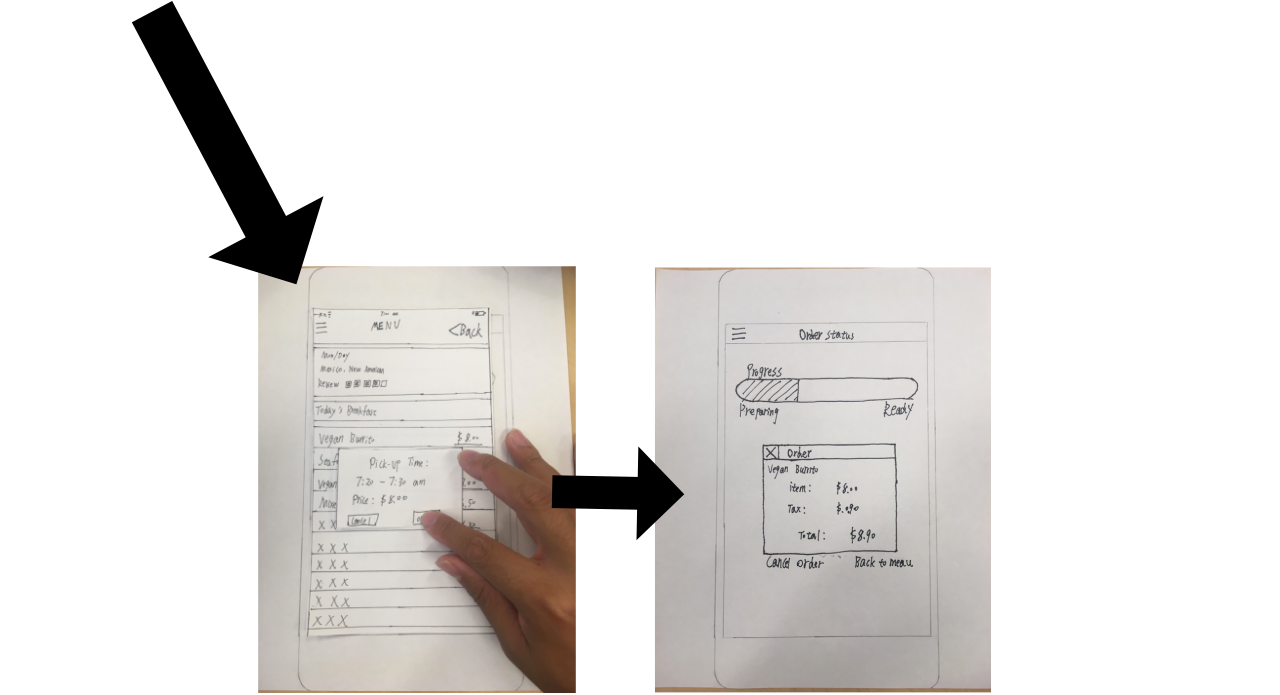 MENU
Back
Mexico, New American
Review
Today's Breakfast
Vegan Burrito $8.00
Vegan
Pick-up Time:
7:20 - 7:30 am
Price: $8.00
Cancel
X X
X X X
X X X
X X X
X X X
X X X
Order status
Progress
Preparing Ready
X Order
Vegan Burrito
item: $8.00
Tax: $.090
Total: $8.90
Cancel order Back to menu